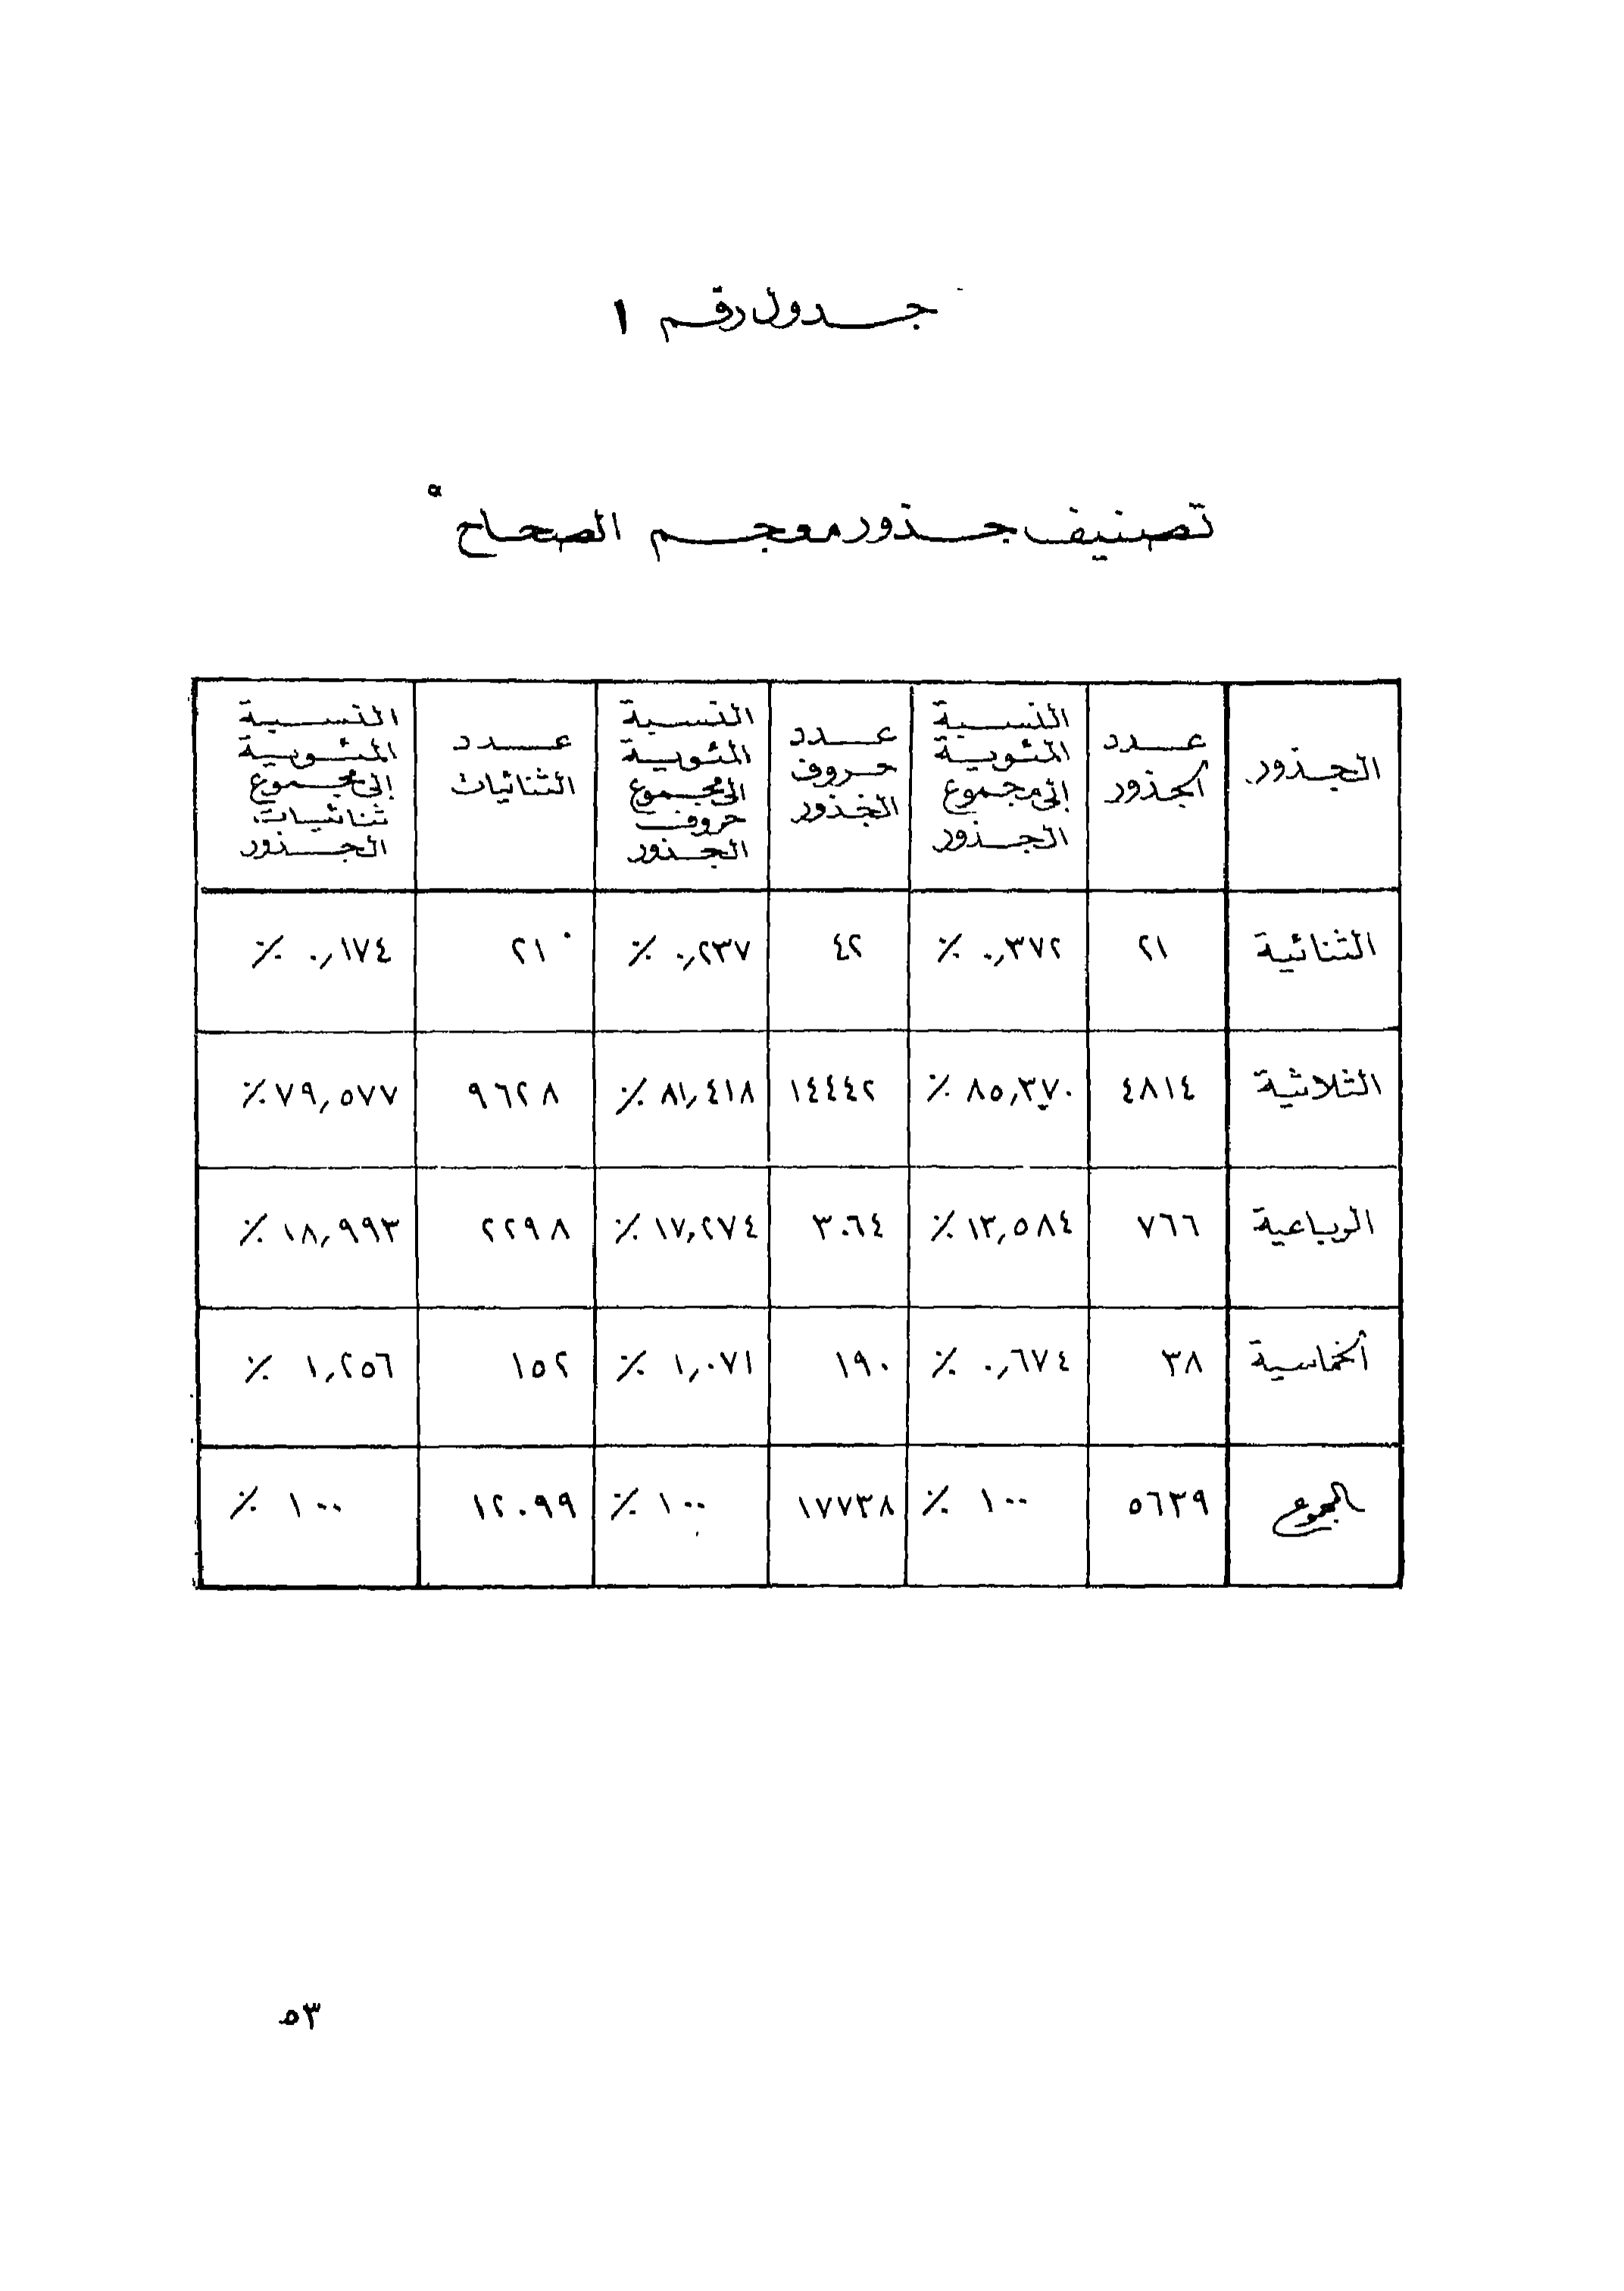 جدول رقم ١
تصنيف جذور معجم الصحاح
الجذور
عدد
الجذور
النسبة
المئوية
إلى مجموع
الجذور
عدد
حروف
الجذور
النسبة
المئوية
الى مجموع
حروف
الجذور
عدد
الثنائيات
النسبة
المئوية
إلى مجموع
ثنائيات
الجذور
الثنائية ٢١ ٠,٣٧٢ ٪ ٤٢ ٠,٢٣٧ ٪ ٢١ ٠,١٧٤ ٪
الثلاثية ٤٨١٤ ٨٥,٣٧٠ ٪ ١٤٤٤٢ ٨١,٤١٨ ٪ ٩٦٢٨ ٧٩,٥٧٧ ٪
الرباعية ٧٦٦ ١٣,٥٨٤ ٪ ٣٠٦٤ ١٧,٢٧٤ ٪ ٢٢٩٨ ١٨,٩٩٣ ٪
الخماسية ٣٨ ٠,٦٧٤ ٪ ١٩٠ ١,٠٧١ ٪ ١٥٢ ١,٢٥٦ ٪
المجموع ٥٦٣٩ ١٠٠ ٪ ١٧٧٣٨ ١٠٠ ٪ ١٢٠٩٩ ١٠٠ ٪
٥٣